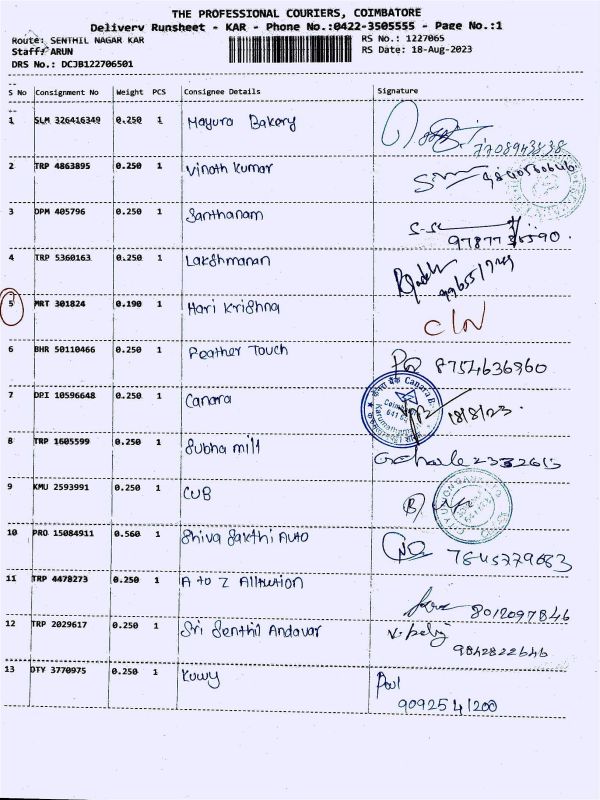 THE PROFESSIONAL COURIERS, COIMBATORE
Delivery Runsheet - KAR - Phone No.:0422-3505555 - Page No.:1
Route: SENTHIL NAGAR KAR RS No.: 1227065
Staff: ARUN RS Date: 18-Aug-2023
DRS No.: DCJB122706501
S No Consignment No Weight PCS Consignee Details Signature
1 SLM 326416349 0.250 1 Mayura Bakery
7708943838
2 TRP 4863895 0.250 1 Vinoth Kumar
3 DPM 405796 0.250 1 Santhanam
4 TRP 5360163 0.250 1 Lakshmanan
5 MRT 301824 0.190 1 Hari Krishna
6 BHR 50110466 0.250 1 Feather Touch 8754636960
7 DPI 10596648 0.250 1 Canara 18/8/23
Canara B
8 TRP 1605599 0.250 1 Subha mill
9 KMU 2593991 0.250 1 CUB
10 PRO 15084911 0.560 1 Shiva Sakthi Auto
7845779683
11 TRP 4478273 0.250 1 A to Z
8012097846
12 TRP 2029617 0.250 1 Sri Senthil Andavar
9842822646
13 DTY 3770975 0.250 1 Paul
9092541200